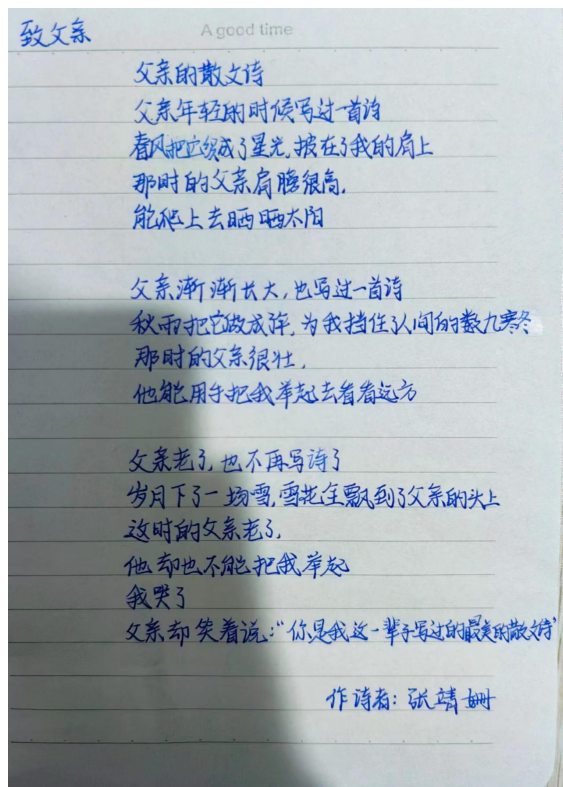 A good time
致父亲
父亲的散文诗
父亲年轻的时候写过一首诗
春风把它织成了星光,披在了我的肩上
那时的父亲肩膀很高,
能爬上去晒晒太阳
父亲渐渐长大,也写过一首诗
秋雨把它做成阵,为我挡住了人间的数九寒冬
那时的父亲很壮,
他能用手把我举起去看看远方
父亲老了,也不再写诗了
岁月下了一场雪,雪花全飘到了父亲的头上
这时的父亲老了,
他却也不能把我举起
我哭了
父亲却笑着说:“你是我这一辈子写过的最美的散文诗”
作诗者:张靖姗